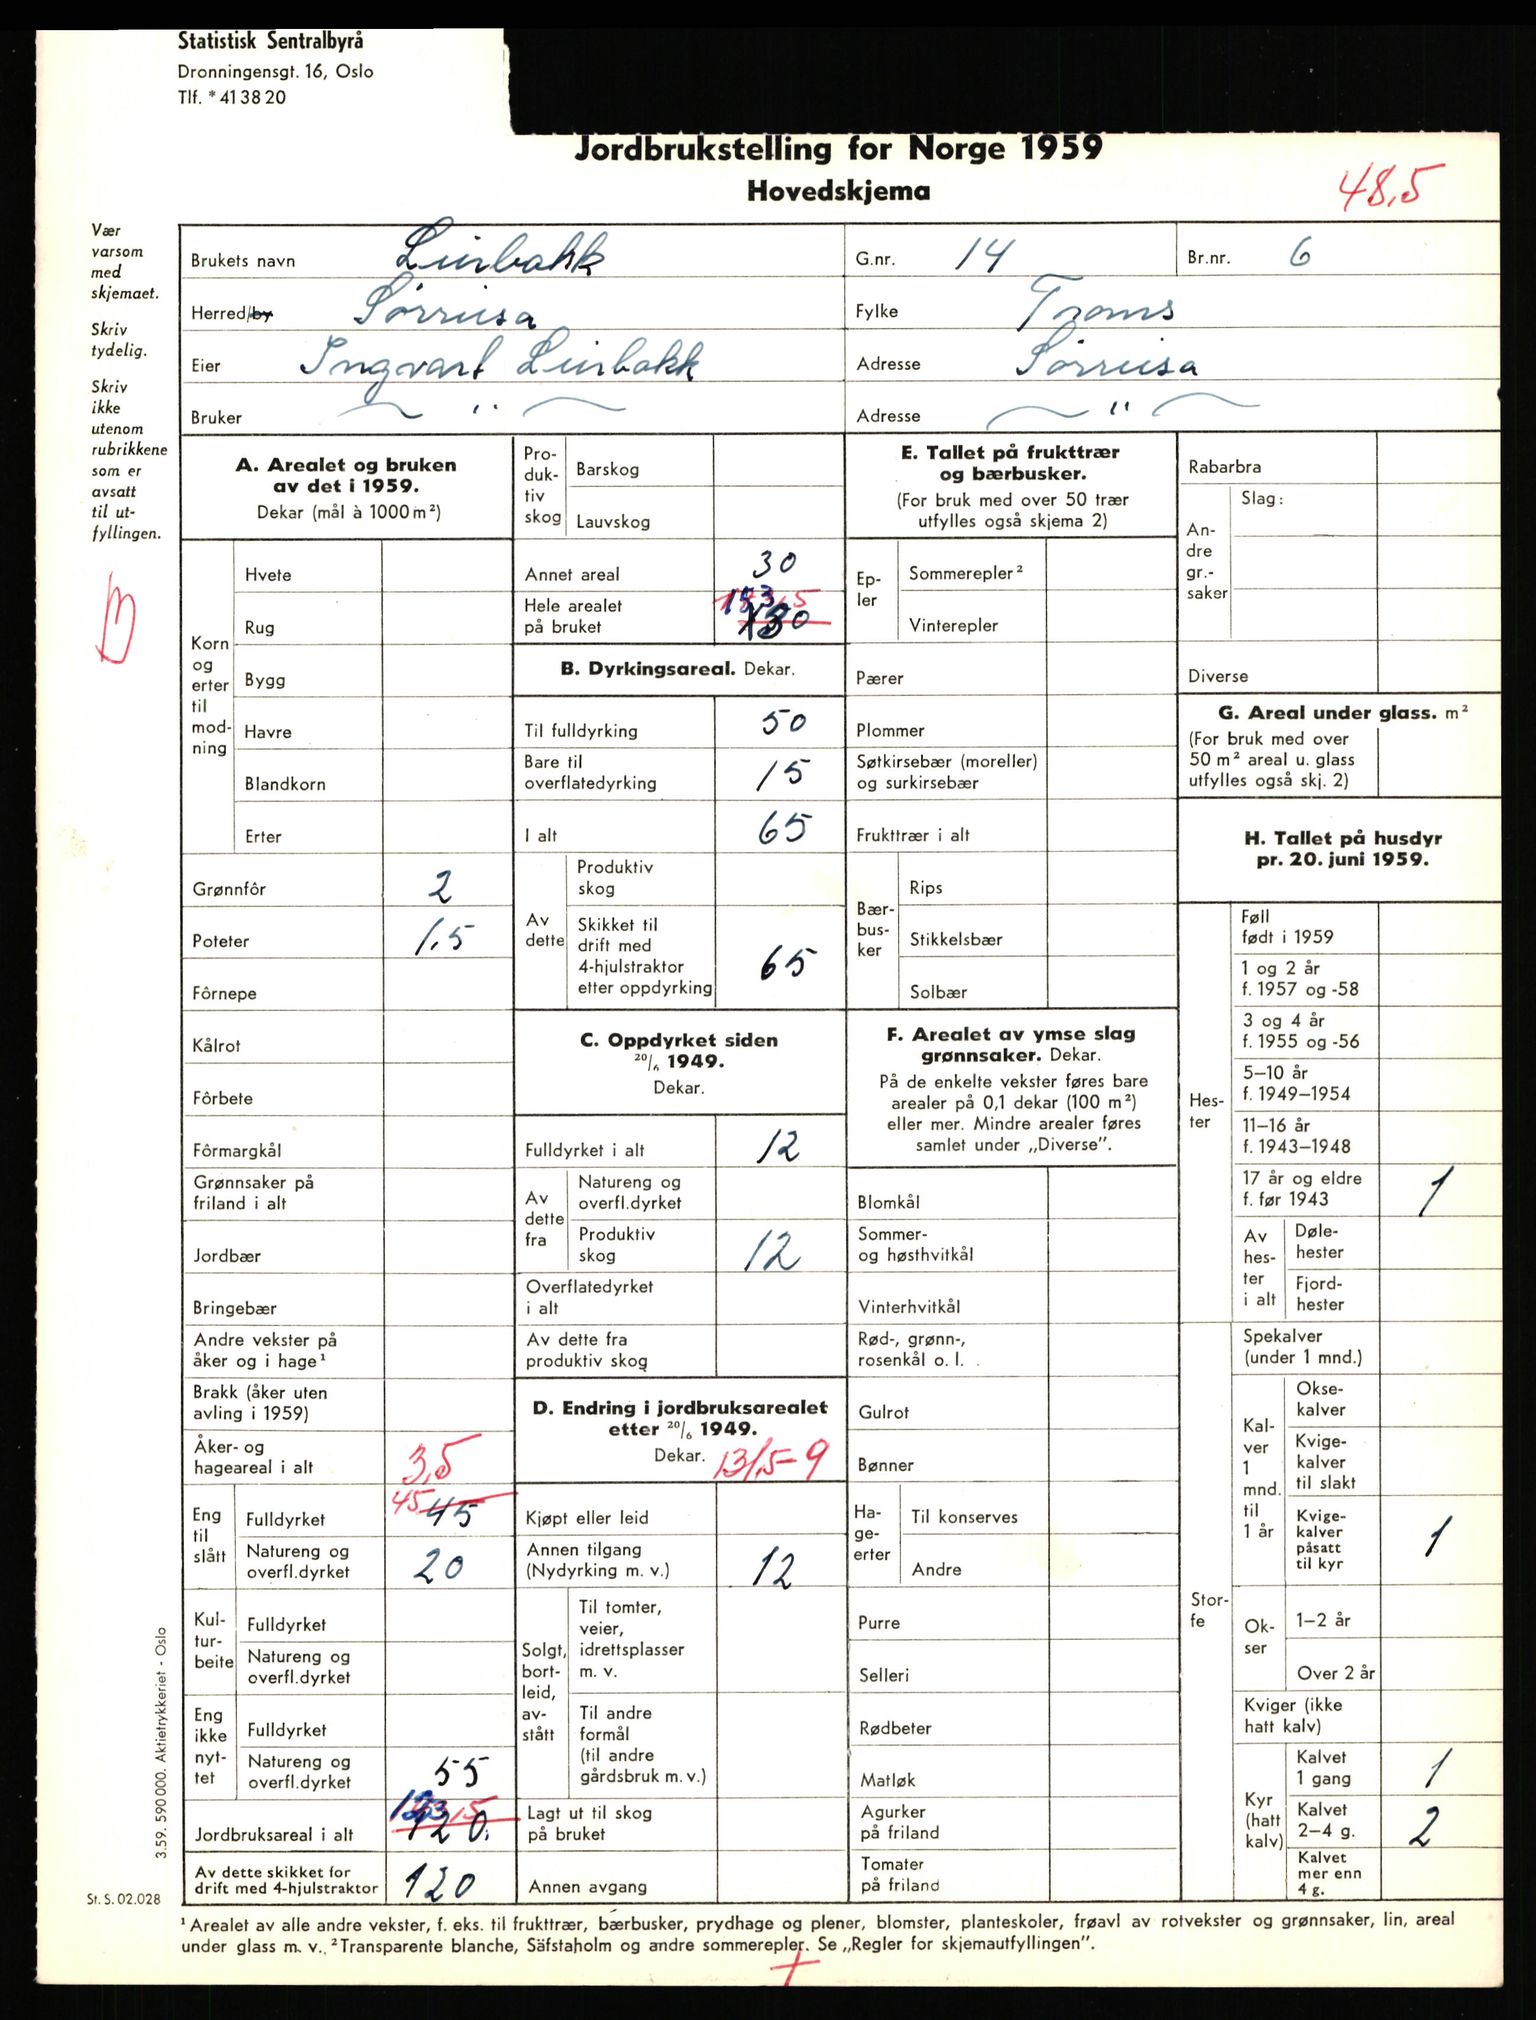 Statistisk Sentralbyrå
Dronningensgt. 16, Oslo
Tlf. * 41 38 20
Jordbrukstelling for Norge 1959
Hovedskjema
48,5
Vær
varsom
med
skjemaet.
Skriv
tydelig.
Skriv
ikke
utenom
rubrikkene
som er
avsatt
til ut-
fyllingen.
Brukets navn Lurbakk G.nr. 14 Br.nr. 6
Herred/by Sørreisa Fylke Troms
Eier Ingvart Lurbakk Adresse Sørreisa
Bruker " Adresse "
A. Arealet og bruken
av det i 1959.
Dekar (mål à 1000 m²)
Korn
og
erter
til
mod-
ning
Hvete
Rug
Bygg
Havre
Blandkorn
Erter
Grønnfôr 2
Poteter 1,5
Fôrnepe
Kålrot
Fôrbete
Fôrmargkål
Grønnsaker på
friland i alt
Jordbær
Bringebær
Andre vekster på
åker og i hage¹
Brakk (åker uten
avling i 1959)
Åker- og
hageareal i alt 3,5
Eng
til
slått
Fulldyrket 45 45
Natureng og
overfl.dyrket 20
Kul-
tur-
beite
Fulldyrket
Natureng og
overfl.dyrket
Eng
ikke
nyt-
tet
Fulldyrket
Natureng og
overfl.dyrket 55
Jordbruksareal i alt 120
Av dette skikket for
drift med 4-hjulstraktor 120
Pro-
duk-
tiv
skog
Barskog
Lauvskog
Annet areal 30
Hele arealet
på bruket
B. Dyrkingsareal. Dekar.
Til fulldyrking 50
Bare til
overflatedyrking 15
I alt 65
Av
dette
Produktiv
skog
Skikket til
drift med
4-hjulstraktor
etter oppdyrking 65
C. Oppdyrket siden
20/6 1949.
Dekar.
Fulldyrket i alt 12
Av
dette
fra
Natureng og
overfl.dyrket
Produktiv
skog 12
Overflatedyrket
i alt
Av dette fra
produktiv skog
D. Endring i jordbruksarealet
etter 20/6 1949.
Dekar. 13/5-9
Kjøpt eller leid
Annen tilgang
(Nydyrking m. v.) 12
Solgt,
bort-
leid,
av-
stått
Til tomter,
veier,
idrettsplasser
m. v.
Til andre
formål
(til andre
gårdsbruk m. v.)
Lagt ut til skog
på bruket
Annen avgang
E. Tallet på frukttrær
og bærbusker.
(For bruk med over 50 trær
utfylles også skjema 2)
Ep-
ler
Sommerepler²
Vinterepler
Pærer
Plommer
Søtkirsebær (moreller)
og surkirsebær
Frukttrær i alt
Bær-
bus-
ker
Rips
Stikkelsbær
Solbær
F. Arealet av ymse slag
grønnsaker. Dekar.
På de enkelte vekster føres bare
arealer på 0,1 dekar (100 m²)
eller mer. Mindre arealer føres
samlet under „Diverse".
Blomkål
Sommer-
og høsthvitkål
Vinterhvitkål
Rød-, grønn-,
rosenkål o. l.
Gulrot
Bønner
Ha-
ge-
erter
Til konserves
Andre
Purre
Selleri
Rødbeter
Matløk
Agurker
på friland
Tomater
på friland
Rabarbra
An-
dre
gr.-
saker
Slag:
Diverse
G. Areal under glass. m²
(For bruk med over
50 m² areal u. glass
utfylles også skj. 2)
H. Tallet på husdyr
pr. 20. juni 1959.
Hes-
ter
Føll
født i 1959
1 og 2 år
f. 1957 og -58
3 og 4 år
f. 1955 og -56
5–10 år
f. 1949–1954
11–16 år
f. 1943–1948
17 år og eldre
f. før 1943 1
Av
hes-
ter
i alt
Døle-
hester
Fjord-
hester
Stor-
fe
Spekalver
(under 1 mnd.)
Kal-
ver
1
mnd.
til
1 år
Okse-
kalver
Kvige-
kalver
til slakt
Kvige-
kalver
påsatt
til kyr 1
Ok-
ser
1–2 år
Over 2 år
Kviger (ikke
hatt kalv)
Kyr
(hatt
kalv)
Kalvet
1 gang 1
Kalvet
2–4 g. 2
Kalvet
mer enn
4 g.
3.59. 590 000. Aktietrykkeriet - Oslo
St. S. 02.028
¹ Arealet av alle andre vekster, f. eks. til frukttrær, bærbusker, prydhage og plener, blomster, planteskoler, frøavl av rotvekster og grønnsaker, lin, areal
under glass m. v. ² Transparente blanche, Säfstaholm og andre sommerepler. Se „Regler for skjemautfyllingen".